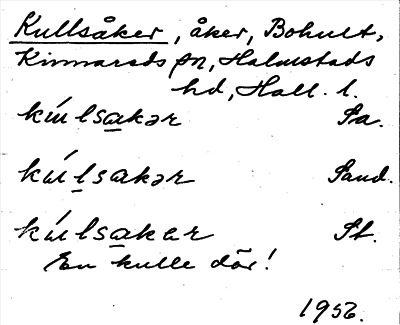 Kullsåker, åker, Bohult,
Kinnareds sn, Halmstads
hd, Hall. l.
kúlsakər Sa.
kúlsakər Sand.
kúlsakar St.
En kulle där!
1956.